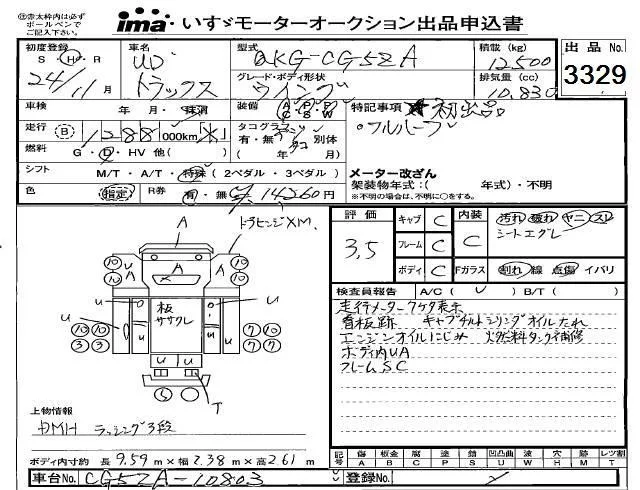 ㊟赤太枠内は必ず
ボールペンで
ご記入下さい。
ima いすゞモーターオークション出品申込書
初度登録 車名 型式 積載 (kg) 出品 No.
S・H・R UD QKG-CG5ZA 12,500
24年11月 トラックス グレード・ボディ形状 排気量 (cc) 3329
ウイング 10,830
車検 年 月・抹消 装備 A P P C S W 特記事項 ★初出品
走行 B 1288 000km タコグラフ ・フルハーフ
有・無 別体
燃料 G・D・HV 他( ) (タコ)
シフト M/T・A/T・特殊 (2ペダル・3ペダル) メーター改ざん
架装物年式:( 年式)・不明
色 指定 R券 有・無 14,260円 ※不明の場合は、不明に○をする。
評価 キャブ C 内装 汚れ 破れ ヤニ スレ
3.5 フレーム C C シートエグレ
ボディ C Fガラス 割れ 線 点傷 イバリ
検査員報告 A/C( ) B/T( )
走行メーター7ケタ表示
看板跡 キャブチルトシリンダオイルたれ
エンジンオイルにじみ 燃料タンク補修
ボディ内UA
フレームSC
A
トラヒンジXM
10 10 U A A 10 10
U U U
板
ササクレ
10 10 7 7
3 3 7 7
U U
5
T
上物情報
DMH ラッシング3段
ボディ内寸約 長 9.59 m×幅 2.38 m×高 2.61 m
記号 傷 板金 腐 塗 錆 凹凸曲 波 穴 跡 レツ割
A B C P S U W H M T
車台No. CG5ZA-10803 登録No.